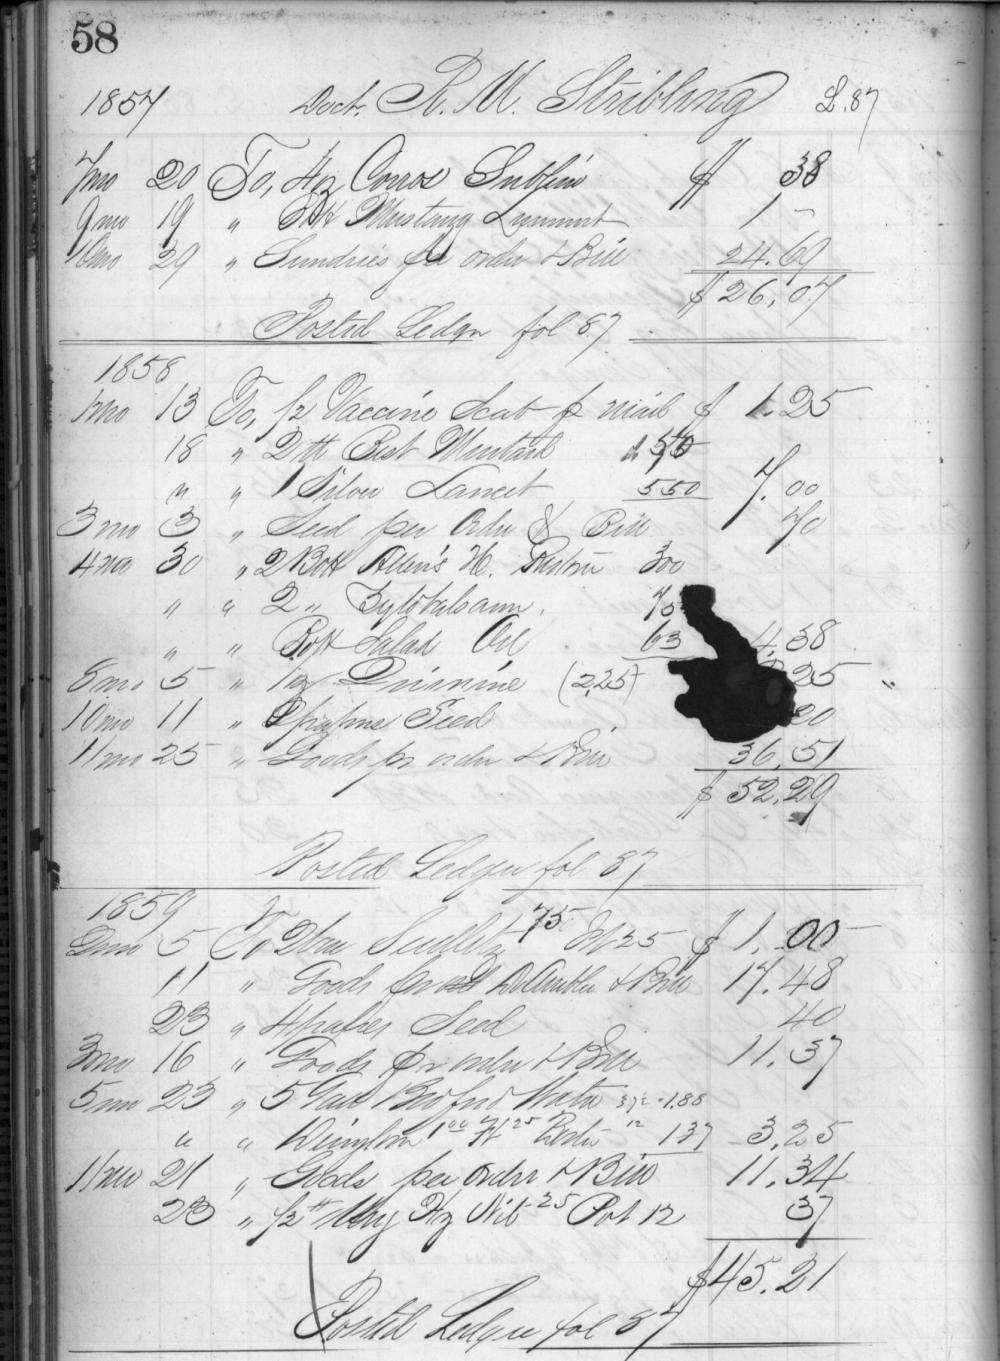 58
1857 Doct. R. M. Stribling L.87
7mo 20 To, 4oz Corros Sublim $ 38
9mo 19 " 3 Bot Mustang Liniment 1 -
10mo 29 " Sundries pr order & Bill 24.69
$ 26.07
Posted Ledger fol 87
1858
1mo 13 To, 1/2 Vaccine Scab p mail $ 1.25
18 " 2 lb Best Mustard 150
" " 1 Silver Lancet 550 7.00
3mo 3 " Seed per Order & Bill 70
4mo 30 " 2 Bott Allen's H. Restor 300
" " 2 " Zylobalsam. 75
" " Bott Salad Oil 63 4.38
5 " 1 oz Quinine (2,25) 25
10mo 11 " papers Seed 20
11mo 25 " Goods pr order & Bill 36.51
$ 52.29
Posted Ledger fol 87
1859
5 To 2 Seidlitz 75 25 $ 1.00
11 " Goods & Bill 17.48
23 " 4 papers Seed 40
3mo 16 " Goods pr order & Bill 11.37
5mo 23 " 5 Gall Bedford Water 37½ - 1.88
" " 1 00 25 12 137 3,25
11mo 21 " Goods per order & Bill 11.34
23 " 1/2 lb 25 Pot 12 37
$45.21
Posted Ledger fol 87